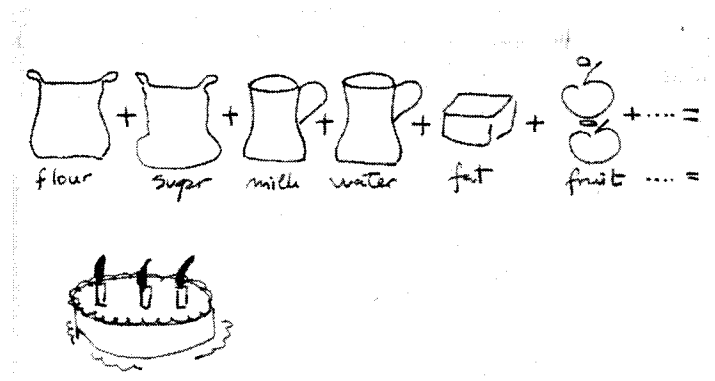 + + + + + + .... =
flour sugar milk water fat fruit .... =